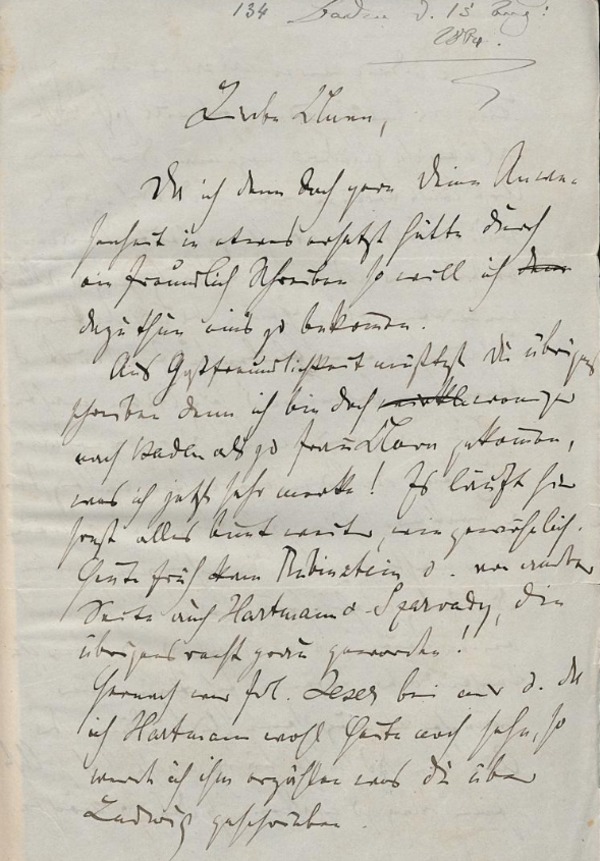 134 Baden d. 15 Aug:
1864.
Liebe Clara,
Da ich denn doch gern Deine Anwe-
senheit in etwas ersetzt hätte durch
ein freundlich Schreiben so will ich
dazu thun eins zu bekommen.
Aus Gastfreundlichkeit müßtest Du übrigens
schreiben denn ich bin doch weniger
nach Baden als zu Frau Clara gekommen,
was ich jetzt sehr merke! Es läuft hier
sonst alles bunt weiter, wie gewöhnlich.
Heute früh kam Rubinstein u. von andrer
Seite auch Hartmann u. Szarvady, die
übrigens recht grau geworden!
Hernach war Frl. Leser bei mir u. da
ich Hartmann wohl heute noch sehe, so
werde ich ihm erzählen was Du über
Ludwig geschrieben.